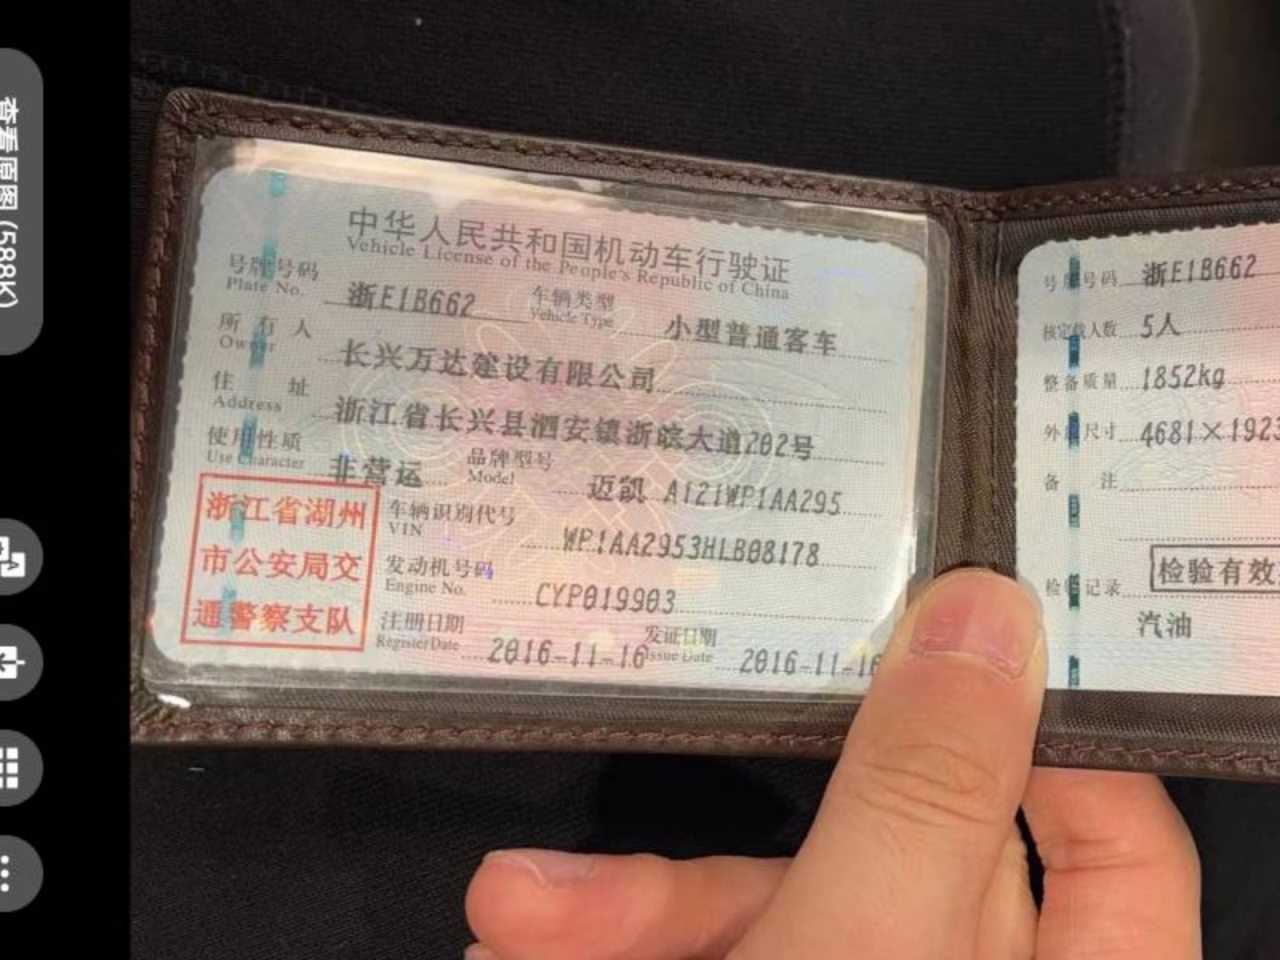 查看原图 (588K)
中华人民共和国机动车行驶证
Vehicle License of the People's Republic of China
号牌号码 浙E1B662 车辆类型 小型普通客车
Plate No. Vehicle Type
所有人 长兴万达建设有限公司
Owner
住址 浙江省长兴县泗安镇浙皖大道202号
Address
使用性质 非营运 品牌型号 迈凯 A121WP1AA295
Use Character Model
浙江省湖州
市公安局交
通警察支队
车辆识别代号 WP1AA2953HLB08178
VIN
发动机号码 CYP019903
Engine No.
注册日期 2016-11-16 发证日期 2016-11-16
Register Date Issue Date
号牌号码 浙E1B662
核定载人数 5人
整备质量 1852kg
外廓尺寸 4681×1923
备注
检验记录 检验有效
汽油